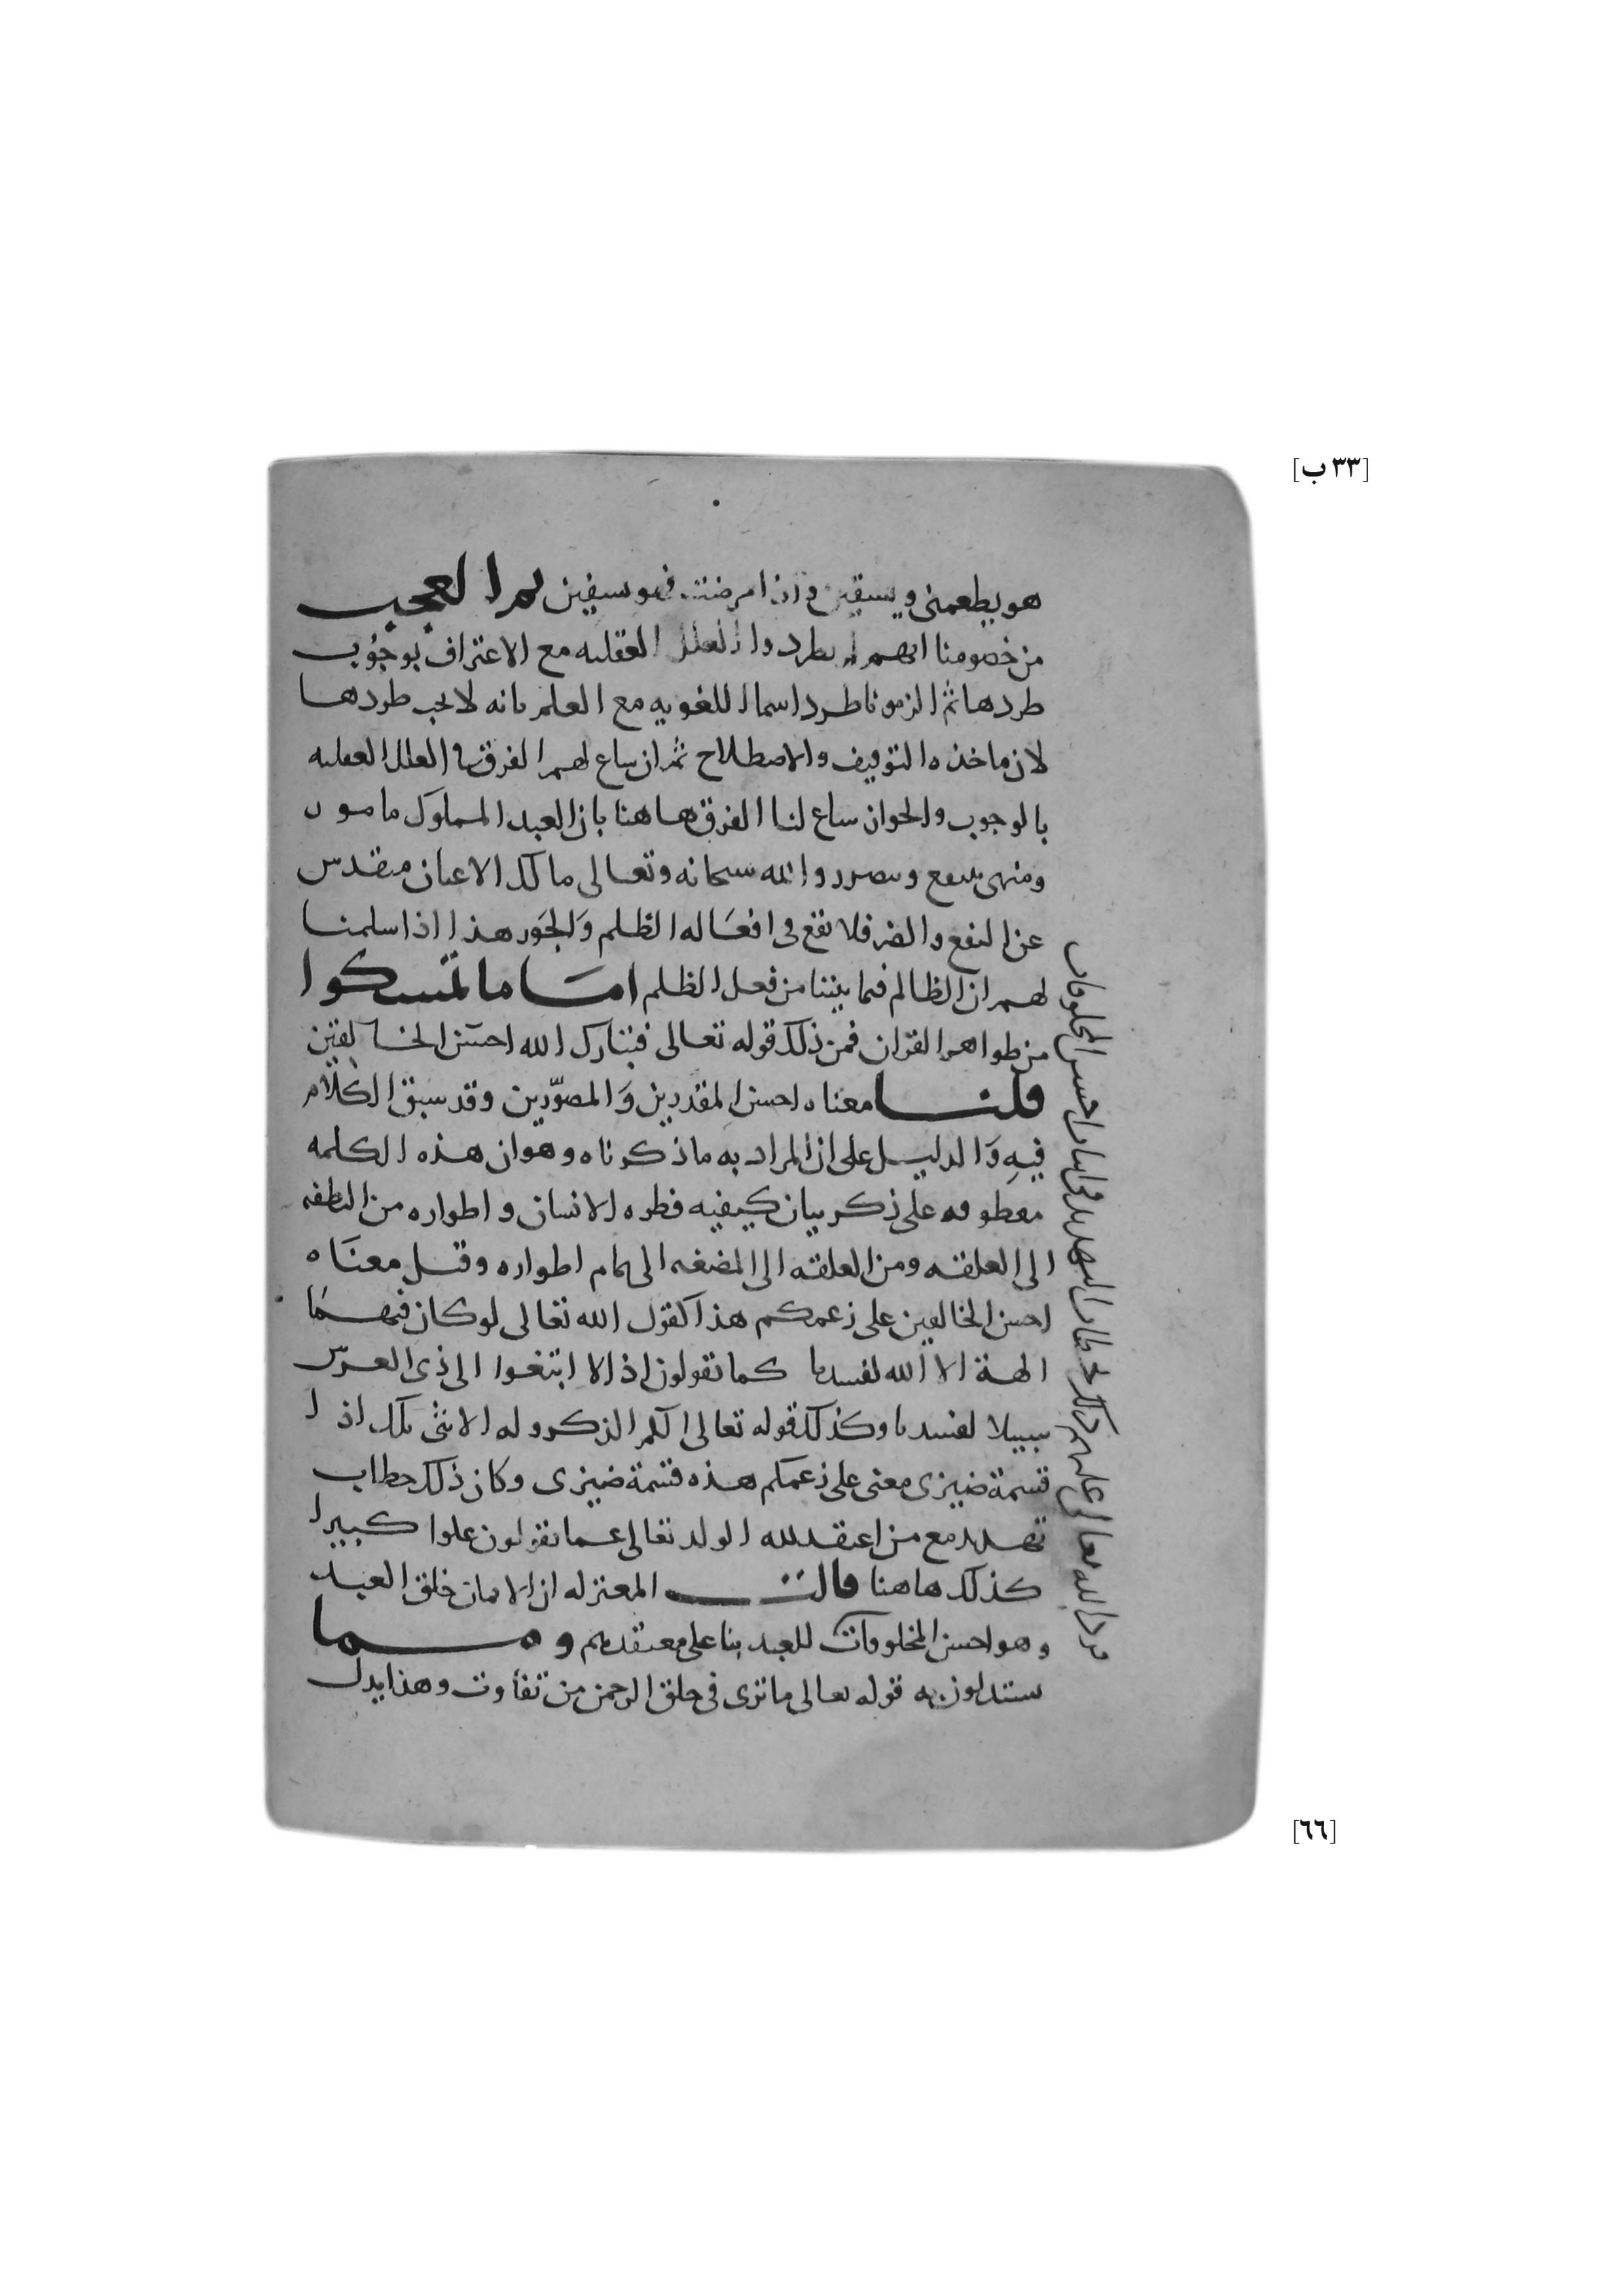 [٣٣ ب]
هو يطعمنى ويسقين واذا مرضت فهو يشفين ثم العجب
من خصومنا انهم لم يطردوا العلل العقليه مع الاعتراف بوجوب
طردها ثم الزمونا طرد اسما اللغويه مع العلم بانه لا يجب طردها
لان ماخذه التوقيف والاصطلاح ثم ان ساغ لهم الفرق فى العلل العقليه
بالوجوب والجواز ساغ لنا الفرق هاهنا بان العبد المملوك مامور
ومنهى ينتفع ويتضرر والله سبحانه وتعالى مالك الاعيان متقدس
عن النفع والضر فلا تقع فى افعاله الظلم والجور هذا اذا سلمنا
لهم ان الظالم فيما بيننا من فعل الظلم اما ما تمسكوا
من ظواهر القران فمن ذلك قوله تعالى فتبارك الله احسن الخالقين
قلنا معناه احسن المقدرين والمصورين وقد سبق الكلام
فيه والدليل على ان المراد به ما ذكرناه وهو ان هذه الكلمه
معطوفه على ذكر بيان كيفيه فطره الانسان واطواره من النطفه
الى العلقه ومن العلقه الى المضغه الى تمام اطواره وقيل معناه
احسن الخالقين على زعمكم هذا كقول الله تعالى لو كان فيهما
الهة الا الله لفسدتا كما تقولون اذا لا ابتغوا الى ذى العرش
سبيلا لفسدتا وكذلك قوله تعالى الكم الذكر وله الانثى تلك اذا
قسمة ضيزى معنى على زعمكم هذه قسمة ضيزى وكان ذلك خطاب
تهديد مع من اعتقد لله الولد تعالى عما تقولون علوا كبيرا
كذلك هاهنا قالت المعتزله ان الايمان خلق العبد
وهو احسن المخلوقات للعبد بنا على معتقدهم ومما
يستدلون به قوله تعالى ما ترى فى خلق الرحمن من تفاوت وهذا يدل
[٦٦]